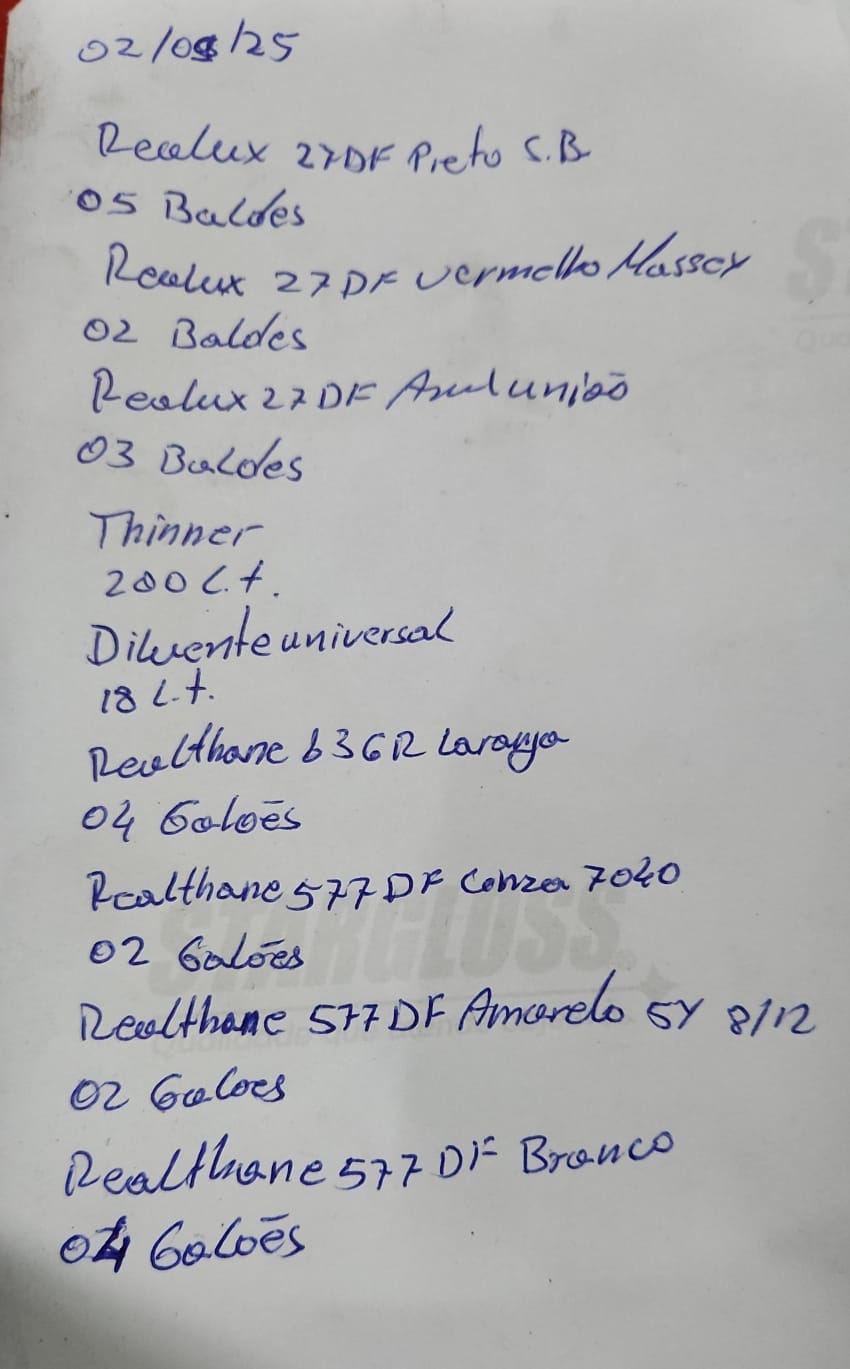 02/08/25
Realux 27DF Preto S.B
05 Baldes
Realux 27DF vermelho Massey
02 Baldes
Realux 27DF Azul união
03 Baldes
Thinner
200 L.t.
Diluente universal
18 L.t.
Realthane 636R Laranja
04 Galões
Realthane 577DF Cinza 7040
02 Galões
Realthane 577DF Amarelo 5Y 8/12
02 Galoes
Realthane 577DF Branco
04 Galões
STARGLOSS